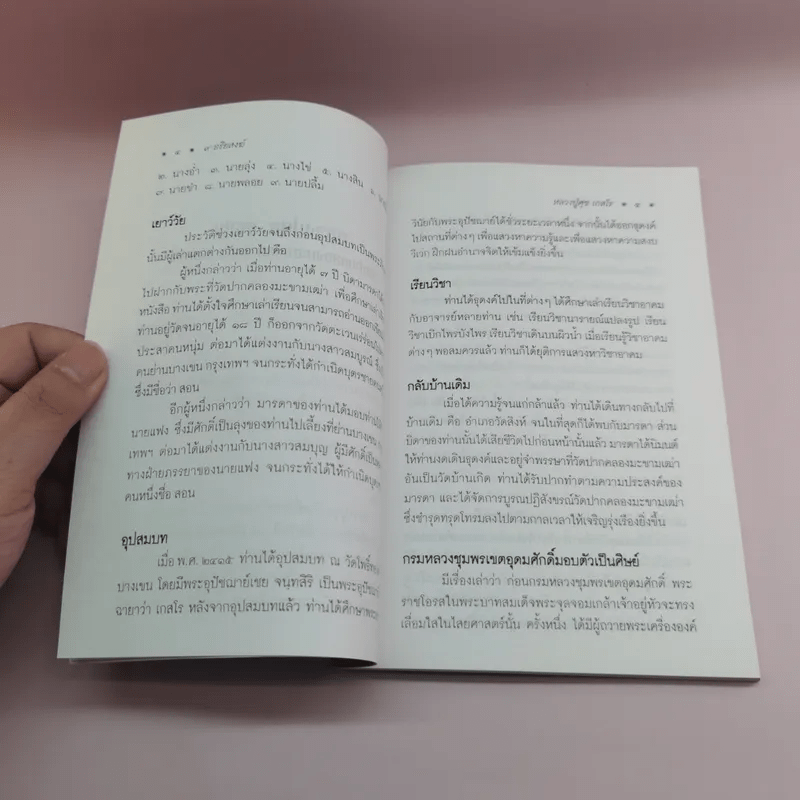 ๔ ๓ อริยสงฆ์
๒. นางอ่ำ ๓. นายลุ่ง ๔. นางไข่ ๕. นางสิน
๗. นายขำ ๘. นายพลอย ๙. นายปลื้ม
เยาว์วัย
ประวัติช่วงเยาว์วัยจนถึงก่อนอุปสมบทเป็นพระ
นั้นมีผู้เล่าแตกต่างกันออกไป คือ
ผู้หนึ่งกล่าวว่า เมื่อท่านอายุได้ ๓ ปี บิดามารดา
ไปฝากกับพระที่วัดปากคลองมะขามเฒ่า เพื่อศึกษาเล่า
หนังสือ ท่านได้ตั้งใจศึกษาเล่าเรียนจนสามารถอ่านออก
ท่านอยู่วัดจนอายุได้ ๑๘ ปี ก็ออกจากวัดตะเวนเร่ร่อน
ประสาคนหนุ่ม ต่อมาได้แต่งงานกับนางสาวสมบูรณ์
คนย่านบางเขน กรุงเทพฯ จนกระทั่งได้กำเนิดบุตรชาย
ซึ่งมีชื่อว่า สอน
อีกผู้หนึ่งกล่าวว่า มารดาของท่านได้มอบท่าน
นายแฟง ซึ่งมีศักดิ์เป็นลุงของท่านไปเลี้ยงที่ย่านบางเขน
เทพฯ ต่อมาได้แต่งงานกับนางสาวสมบุญ ผู้มีศักดิ์เป็น
ทางฝ่ายภรรยาของนายแฟง จนกระทั่งได้ให้กำเนิดบุตร
คนหนึ่งชื่อ สอน
อุปสมบท
เมื่อ พ.ศ. ๒๔๑๕ ท่านได้อุปสมบท ณ วัดโพธิ์
บางเขน โดยมีพระอุปัชฌาย์เชย จนฺทสิริ เป็นพระอุปัชฌาย์
ฉายาว่า เกสโร หลังจากอุปสมบทแล้ว ท่านได้ศึกษาพระ
หลวงปู่ศุข เกสโร ๕
วินัยกับพระอุปัชฌาย์ได้ชั่วระยะเวลาหนึ่ง จากนั้นได้ออกธุดงค์
ไปสถานที่ต่างๆ เพื่อแสวงหาความรู้และเพื่อแสวงหาความสงบ
วิเวก ฝึกฝนอำนาจจิตให้เข้มแข็งยิ่งขึ้น
เรียนวิชา
ท่านได้ธุดงค์ไปในที่ต่างๆ ได้ศึกษาเล่าเรียนวิชาอาคม
กับอาจารย์หลายท่าน เช่น เรียนวิชานารายณ์แปลงรูป เรียน
วิชาเบิกไพรบังไพร เรียนวิชาเดินบนผิวน้ำ เมื่อเรียนรู้วิชาอาคม
ต่างๆ พอสมควรแล้ว ท่านก็ได้ยุติการแสวงหาวิชาอาคม
กลับบ้านเดิม
เมื่อได้ความรู้จนแก่กล้าแล้ว ท่านได้เดินทางกลับไปที่
บ้านเดิม คือ อำเภอวัดสิงห์ จนในที่สุดก็ได้พบกับมารดา ส่วน
บิดาของท่านนั้นได้เสียชีวิตไปก่อนหน้านั้นแล้ว มารดาได้นิมนต์
ให้ท่านงดเดินธุดงค์และอยู่จำพรรษาที่วัดปากคลองมะขามเฒ่า
อันเป็นวัดบ้านเกิด ท่านได้รับปากทำตามความประสงค์ของ
มารดา และได้จัดการบูรณปฏิสังขรณ์วัดปากคลองมะขามเฒ่า
ซึ่งชำรุดทรุดโทรมลงไปตามกาลเวลาให้เจริญรุ่งเรืองยิ่งขึ้น
กรมหลวงชุมพรเขตอุดมศักดิ์มอบตัวเป็นศิษย์
มีเรื่องเล่าว่า ก่อนกรมหลวงชุมพรเขตอุดมศักดิ์ พระ
ราชโอรสในพระบาทสมเด็จพระจุลจอมเกล้าเจ้าอยู่หัวจะทรง
เลื่อมใสในไสยศาสตร์นั้น ครั้งหนึ่ง ได้มีผู้ถวายพระเครื่ององค์